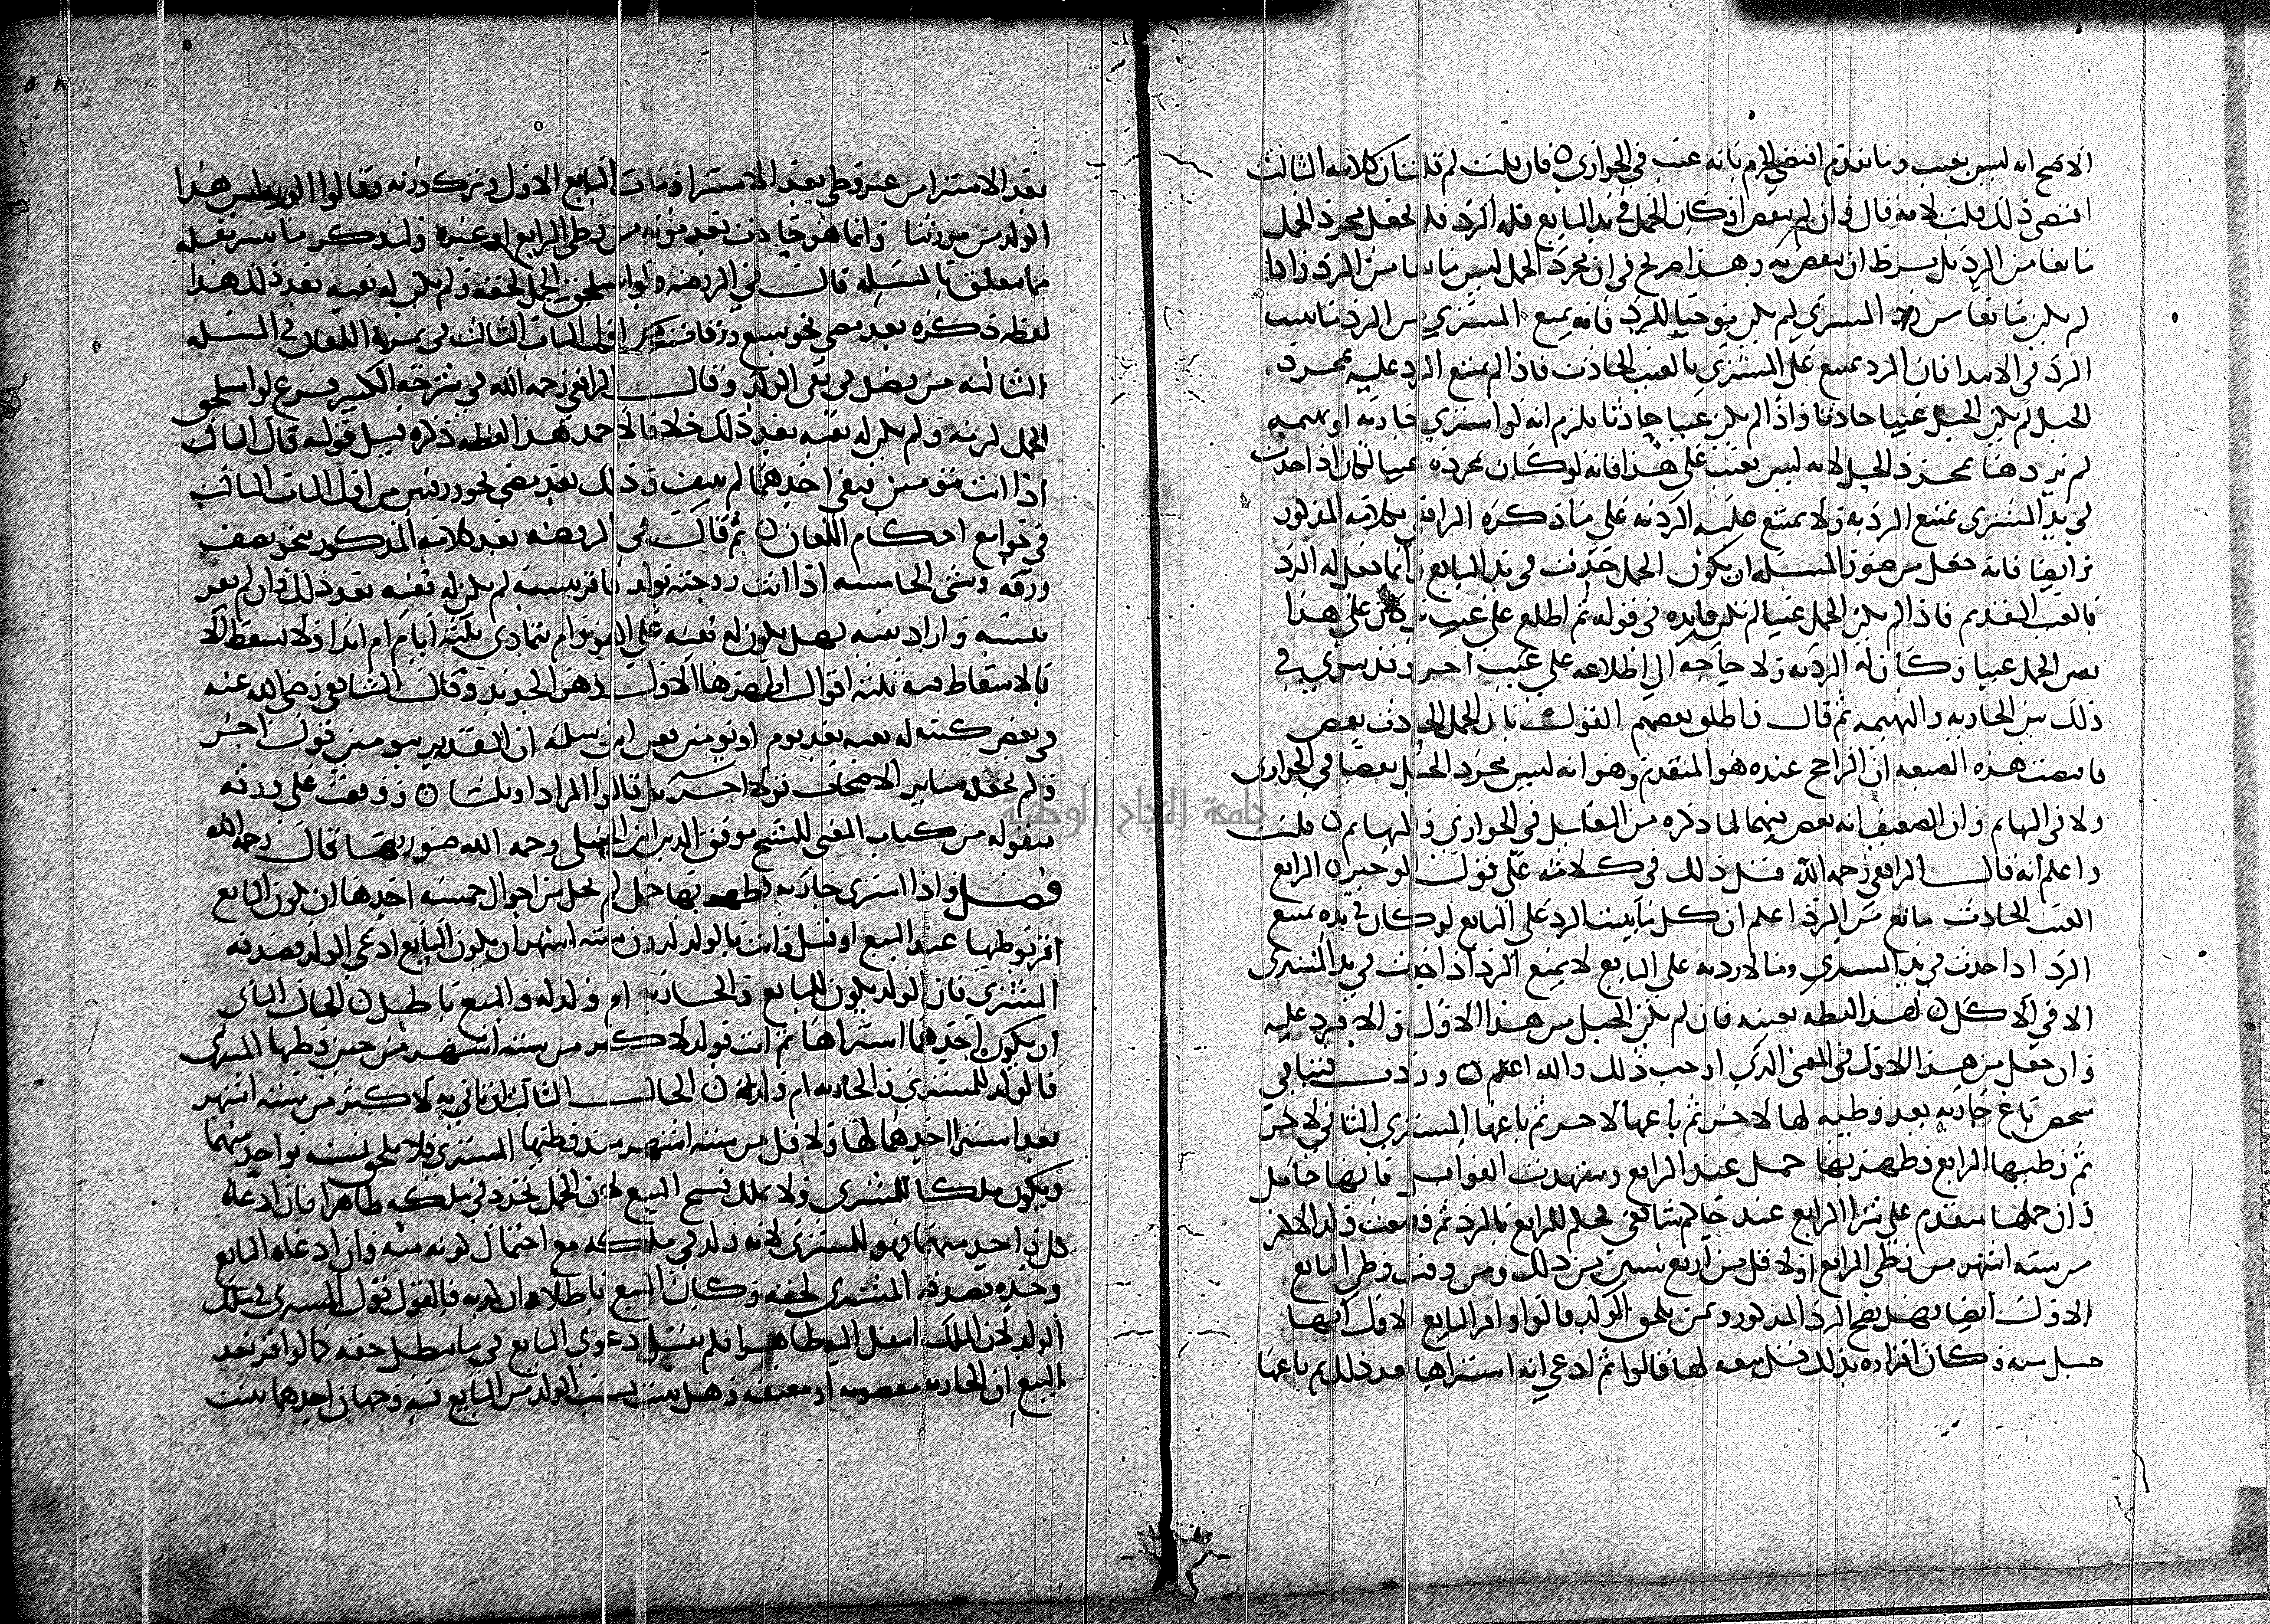 الاصح انه ليس بعيب وما تقدم اقتضى الجزم بانه عيب في الجواري فان قلت لم قلت ان كلامه الثالث
اقتضى ذلك قلت لانه قال وان لم ينقص او كان الحمل في يد البايع فله الرد فلم يجعل مجرد الحمل
مانعا من الرد بل شرط ان ينقص به وهذا صريح في ان مجرد الحمل ليس مانعا من الرد واذا
لم يكن مانعا من رد المشتري لم يكن موجبا للرد فانه يمنع المشتري من الرد ما يثبت
الرد في الابتدا فان الرد يمتنع على المشتري بالعيب الحادث فاذا لم يمتنع الرد عليه بمجرد
الحبل لم يكن الحبل عيبا حادثا واذا لم يكن عيبا حادثا يلزم انه لو اشترى جارية او بهيمة
لم ترد هنا بمجرد الحبل لانه ليس بعيب على هذا فانه لو كان بمجرده عيبا لكان اذا حدث
في يد المشتري يمتنع الرد به ولا يمتنع عليه الرد به على ما ذكره الرافعي بكلامه المذكور
وايضا فانه جعل من صور المسلة ان يكون الحمل حدث في يد البايع وانما جعل له الرد
بالعيب القديم فاذا لم يكن الحمل عيبا لم تكن فايدة في قوله ثم اطلع على عيب بل كان على هذا
نفس الحمل عيبا وكان له الرد به ولا حاجة الى اطلاعه على عيب اخر
ذلك بين الجارية والبهيمة ثم قال واطلق بعضهم القول بان الحمل الحادث نقص
فاقتضت هذه الصيغة ان الراجح عنده هو المتقدم وهو انه ليس مجرد الحبل نقصا في الجواري
ولا في البهايم وان الضعيف انه نقص فيهما لما ذكره من التفاصيل في الجواري والبهايم قلت
واعلم انه قال الرافعي رحمه الله قبل ذلك في كلامه على قول الوجيز الرابع
العيب الحادث مانع من الرد اعلم ان كل ما يثبت الرد على البايع لو كان في يده يمنع
الرد اذا حدث في يد المشتري وما لا رد به على البايع لا يمنع الرد اذا حدث في يد المشتري
الا في الاقل هذا لفظه بعينه فان لم يكن الحبل من هذا الاول والا فيرد عليه
وان جعل من هذا الاول فما المعنى الذي اوجب ذلك والله اعلم وردت فتيا في
شخص باع جارية بعد وطيه لها لاخر ثم باعها لاخر ثم باعها المشتري الثاني لاخر
ثم وطيها الرابع وظهر بها حمل عند الرابع وشهدت القوابل بانها حامل
وان حملها متقدم على شرا الرابع عند حاكم شافعي فحكم للرابع بالرد ثم وضعت ولدا لاكثر
من ستة اشهر من وطي الرابع ولاقل من اربع سنين من ذلك ومن وقت وطي البايع
الاول ايضا فهل يصح الرد المذكور وبمن يلحق الولد قالوا واقر البايع الاول انها
حبل منه وكان اقراره بذلك قبل بيعه لها قالوا ثم ادعى انه استبراها بعد ذلك ثم باعها
بعد الاستبرا من غير وطي بعد الاستبرا ومات البايع الاول وترك ورثة وقالوا الورثة ليس هذا
الولد من مورثنا وانما هو حادث بعد موته من وطي الرابع او غيره ولنذكر ما تيسر نقله
مما يتعلق بالمسلة قال في الروضة ولو استلحق الحمل لحقه ولم يكن له نفيه بعد ذلك هذا
لفظه ذكره بعد مضي نحو سبع ورقات من اول الباب الثالث في ثمرة اللعان في المسلة
الثالثة من فصل في نفي الولد وقال الرافعي رحمه الله في شرحه الكبير فرع لو استلحق
الحمل لزمه ولم يكن له نفيه بعد ذلك خلافا لاحمد هذا لفظه ذكره قبل قوله قال الثالث
اذا اتت بتومين فنفى احدهما لم ينتف وذلك بعد مضي نحو ورقتين من اول الباب الثالث
في جوامع احكام اللعان ثم قال في الروضة بعد كلامه المذكور بنحو نصف
ورقة وهي الخامسة اذا اتت زوجته بولد فاقر بنسبه لم يكن له نفيه بعد ذلك وان لم يقر
بنسبه واراد نفيه فهل يكون له نفيه على الفور ام يتمادى ثلاثة ايام ام ابدا ولا يسقط الا
بالاسقاط فيه ثلثة اقوال اظهرها الاول وهو الجديد وقال الشافعي رضي الله عنه
في بعض كتبه له نفيه بعد يوم او يومين فعن ابن سلمة ان التقدير بيومين قول اخر
ولم يجعله ساير الاصحاب قولا اخر بل قالوا المراد او ثلثا ووقفت على ورقة
منقولة من كتاب المغني للشيخ موفق الدين الحنبلي رحمه الله صورتها قال رحمه الله
فصل واذا اشترى جارية فظهر بها حمل لم يخل من احوال خمسة احدها ان يكون البايع
اقر بوطيها عند البيع او قبله واتت بالولد لدون ستة اشهر او يكون البايع ادعى الولد وصدقه
المشتري فان الولد يكون للبايع والجارية ام ولد له والبيع باطل الحال الثاني
ان يكون احدهما استبراها ثم اتت بولد لاكثر من ستة اشهر من حين وطيها المشتري
فالولد للمشتري والجارية ام ولد له الحال الثالث ان تاتي به لاكثر من ستة اشهر
بعد استبرا احدهما لها ولاقل من ستة اشهر منذ وطيها المشتري فلا يلحق نسبه بواحد منهما
ويكون ملكا للمشتري ولا يملك فسخ البيع لان الحمل تجدد في ملكه ظاهرا فان ادعاه
كل واحد منهما فهو للمشتري لانه ولد في ملكه مع احتمال كونه منه وان ادعاه البايع
وحده فصدقه المشتري لحقه وكان البيع باطلا وان كذبه فالقول قول المشتري في ملك
الولد لان الملك انتقل اليه ظاهرا فلم تقبل دعوى البايع في ما يبطل حقه كما لو اقر بعد
البيع ان الجارية مغصوبة او معتقة وهل يثبت نسب الولد من البايع فيه وجهان احدهما يثبت